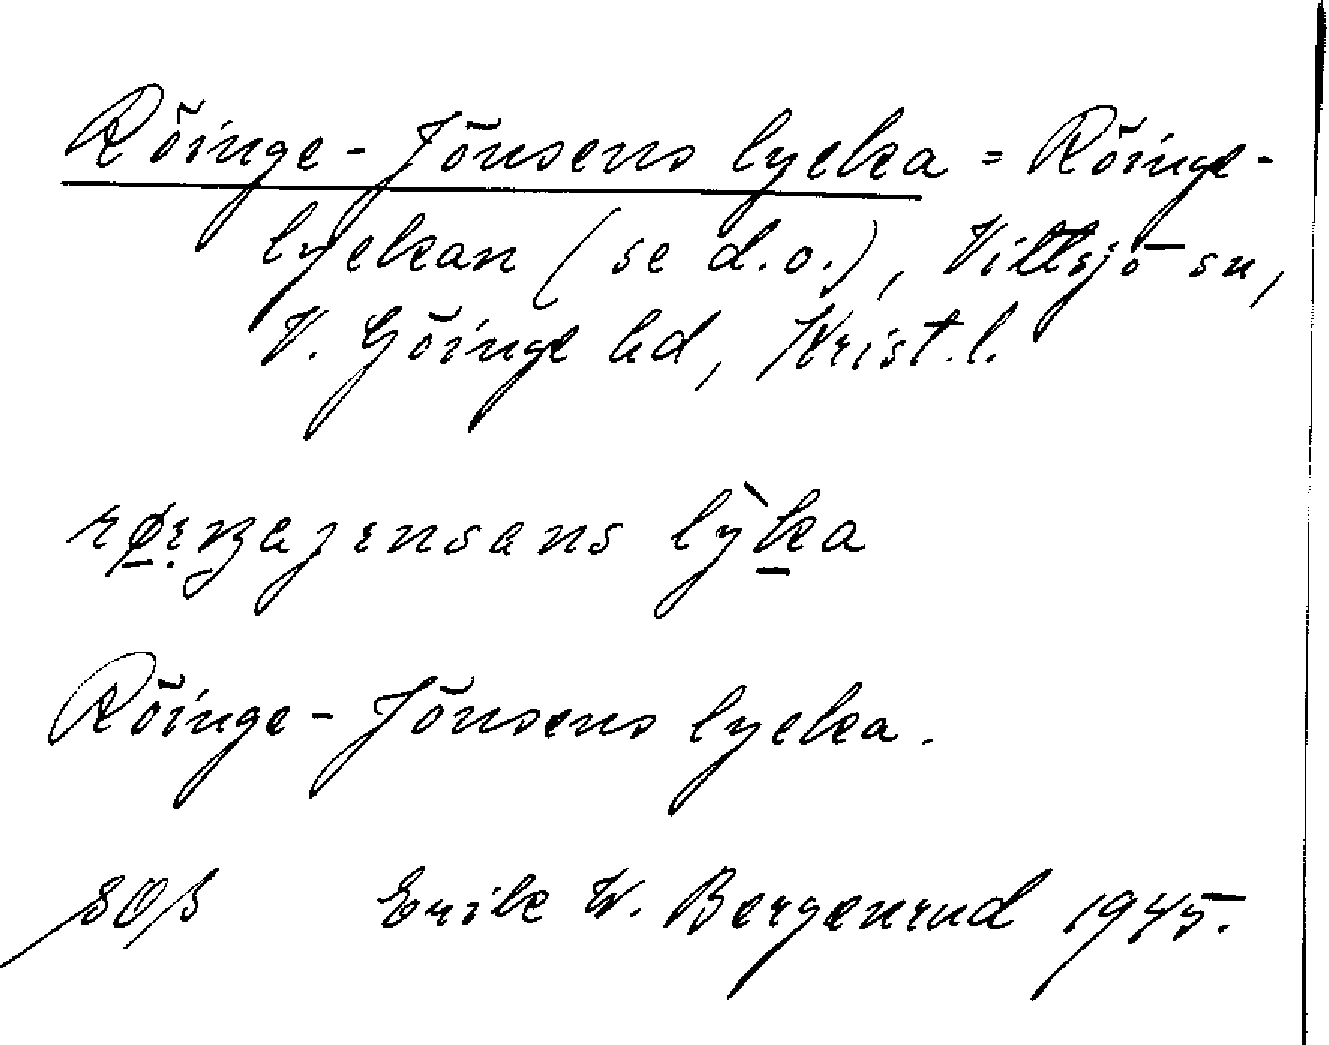 Röinge-Jönsens lycka = Röinge-
lyckan (se d.o.), Vittsjö sn,
V. Göinge hd, Krist. l.
lỳka
Röinge-Jönsens lycka.
Erik W. Bergenrud 1945.